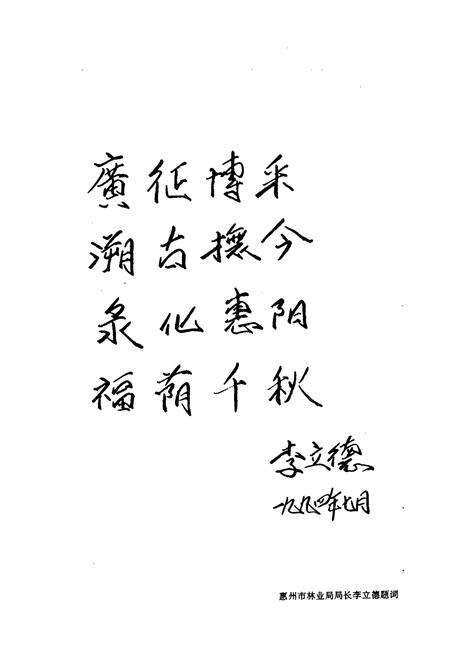 廣征博采
溯古撫今
化惠阳
福荫千秋
李立德
一九九四年七月
惠州市林业局局长李立德题词